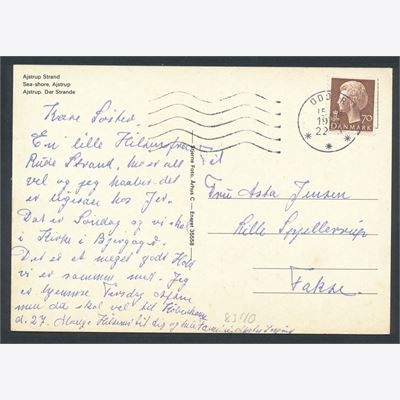 Ajstrup Strand
Sea-shore, Ajstrup
Ajstrup. Der Strande
Kære Søster.
En lille Hilsen fra
Rude Strand, her er alt
vel og jeg haaber det
er ligesaa hos Jer.
Det er Søndag og vi skal
i Kirke i
Det er et meget godt Hold
vi er sammen med. Jeg
er hjemme Torsdag aften
men da skal vel til København
d. 27. Mange Hilsener til dig og
Til
Fru Asta Jensen
Lille
Fakse.
Bjerne Foto, Århus C — Eneret 35558
ODDER
15
19
22
70
DANMARK
8340